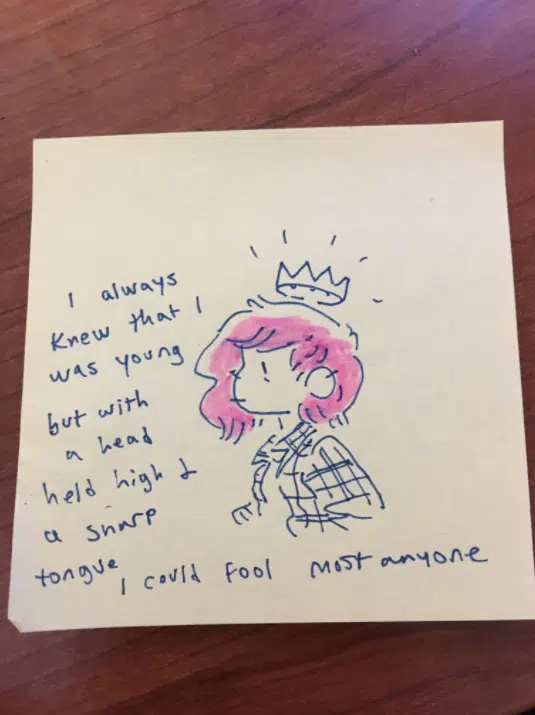 I always
knew that I
was young
but with
a head
held high &
a sharp
tongue
I could fool most anyone